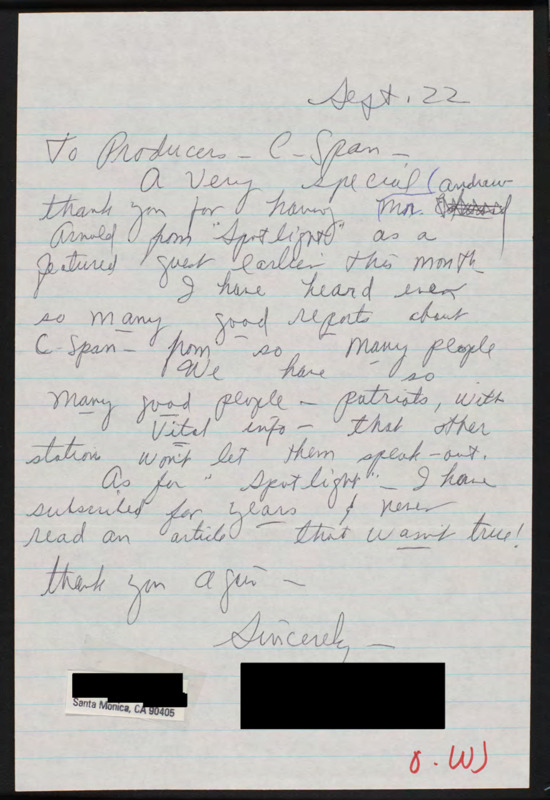 Sept. 22
To Producers - C-Span -
A Very special (andrew
thank you for having Mr.
Arnold from "Spotlight" as a
featured guest earlier this month
I have heard ever
so many good reports about
C-Span - from so many people
We have so
many good people - patriots, with
Vital info - that other
station won't let them speak-out.
As for "Spotlight" - I have
subscribed for years & never
read an article that wasn't true!
thank you again -
Sincerely -
Santa Monica, CA 90405